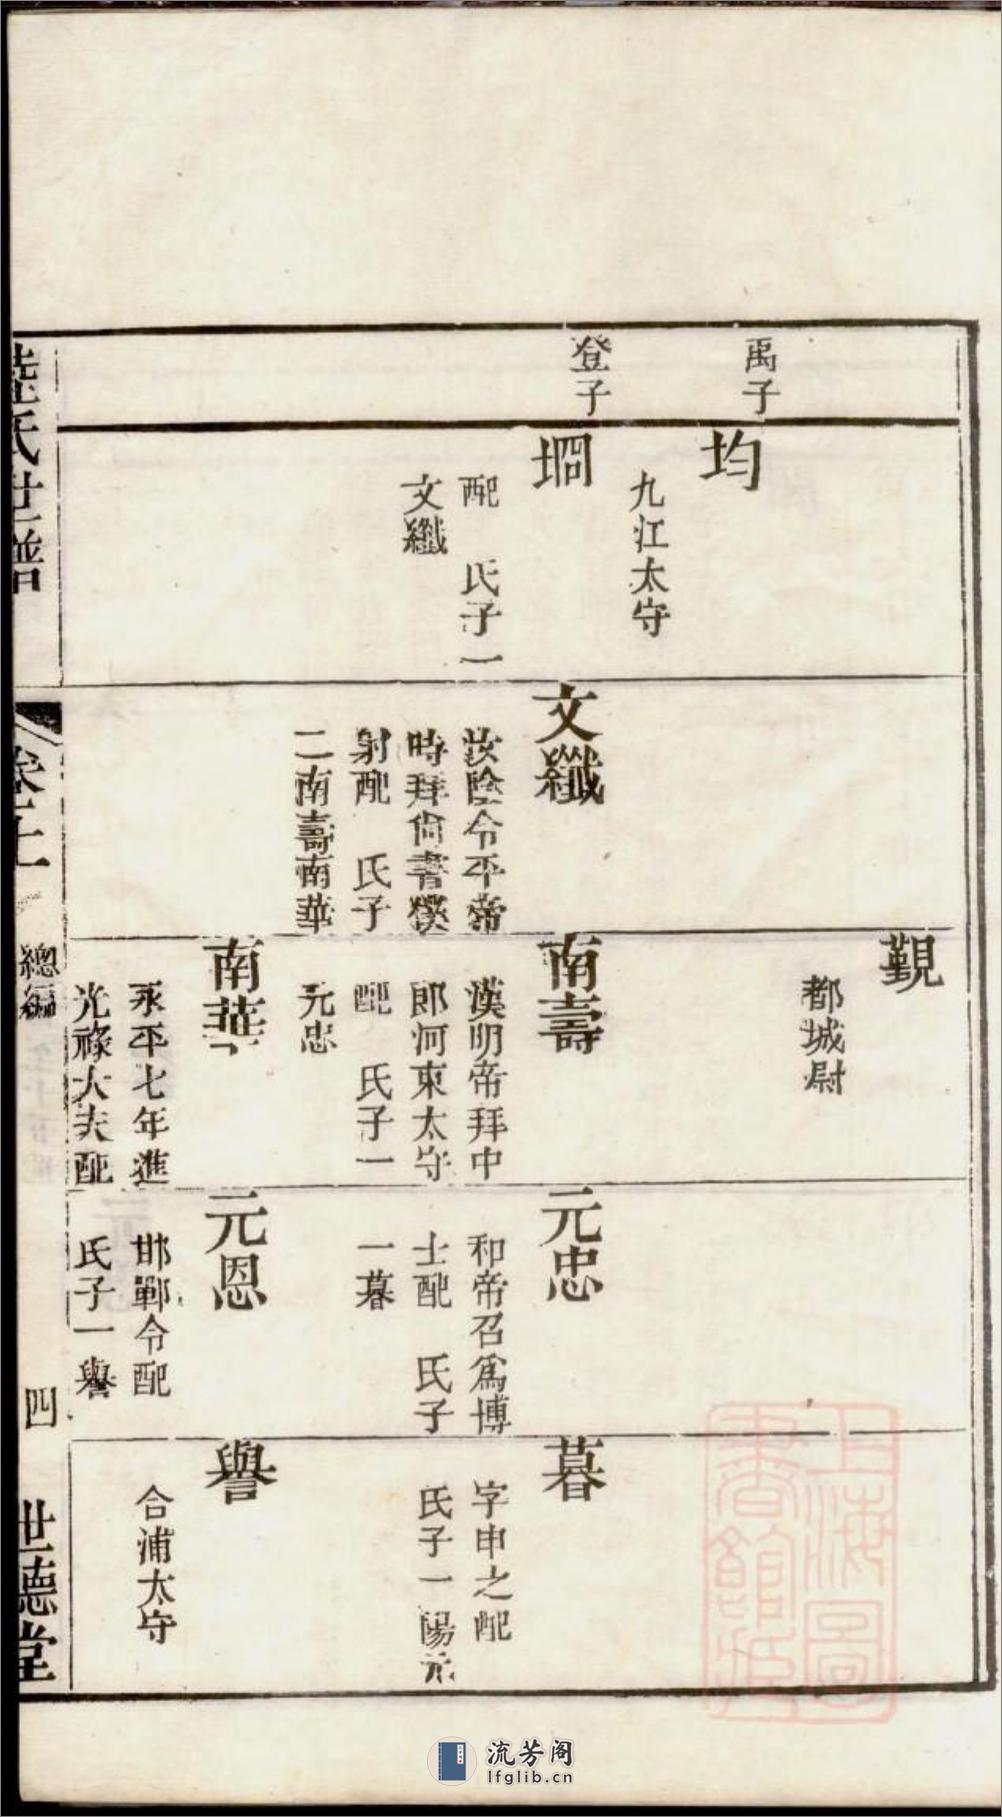 禹子
登子
均
九江太守
堈
配　氏子一
文纖
文纖
汝陰令平帝
時拜尙書僕
射配　氏子
二南壽南華
覲
都城尉
南壽
漢明帝拜中
郎河東太守
配　氏子一
元忠
南華
永平七年進
光祿大夫配
元忠
和帝召爲博
士配　氏子
一暮
元恩
邯鄲令配
氏子一譽
暮
字申之配
氏子一陽元
譽
合浦太守
陸氏世譜
卷上
總編
四
世德堂
上海圖
書館藏
流芳阁
lfglib.cn